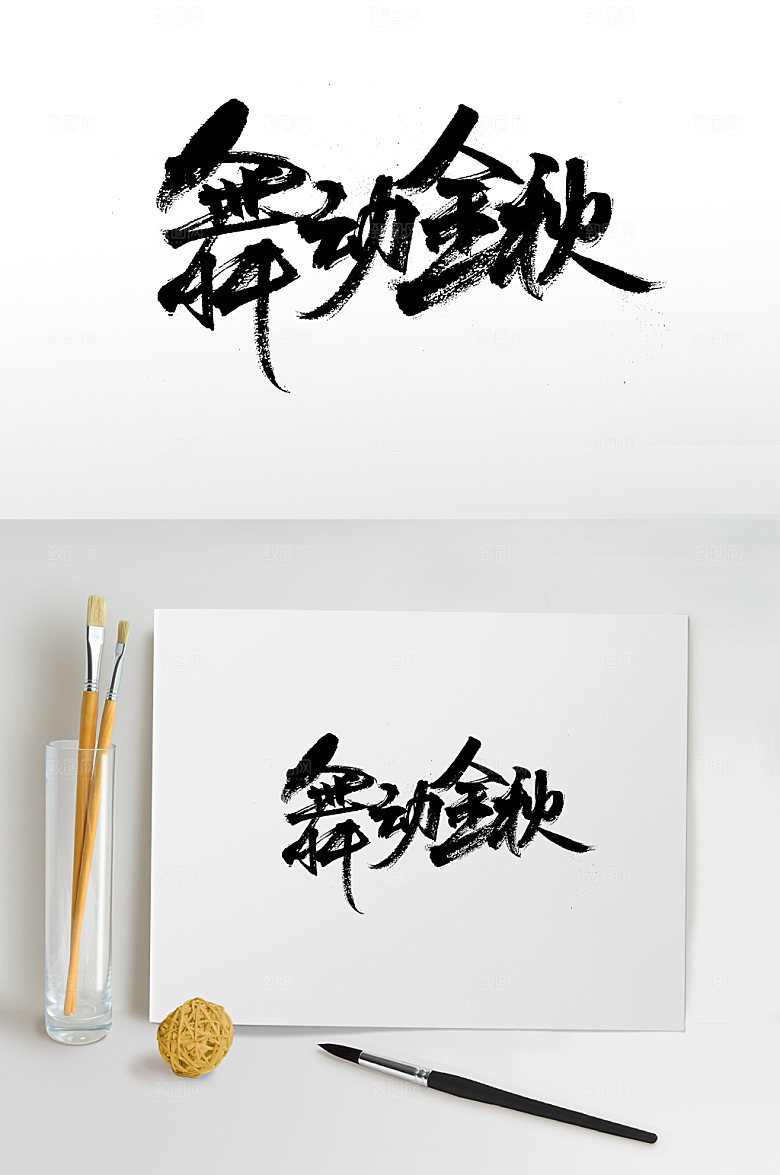 舞动金秋
舞动金秋